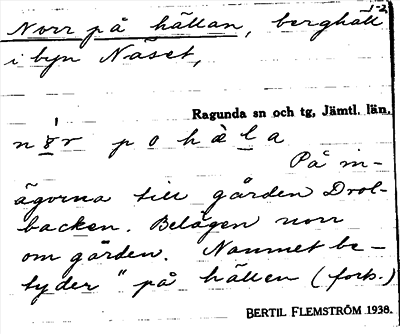 1-2
Norr på hällan, berghäll
i byn Näset,
Ragunda sn och tg, Jämtl. län.
På in-
ägorna till gården Drol-
backen. Belägen norr
om gården. Namnet be-
tyder "på hällen (forts.)
BERTIL FLEMSTRÖM 1938.